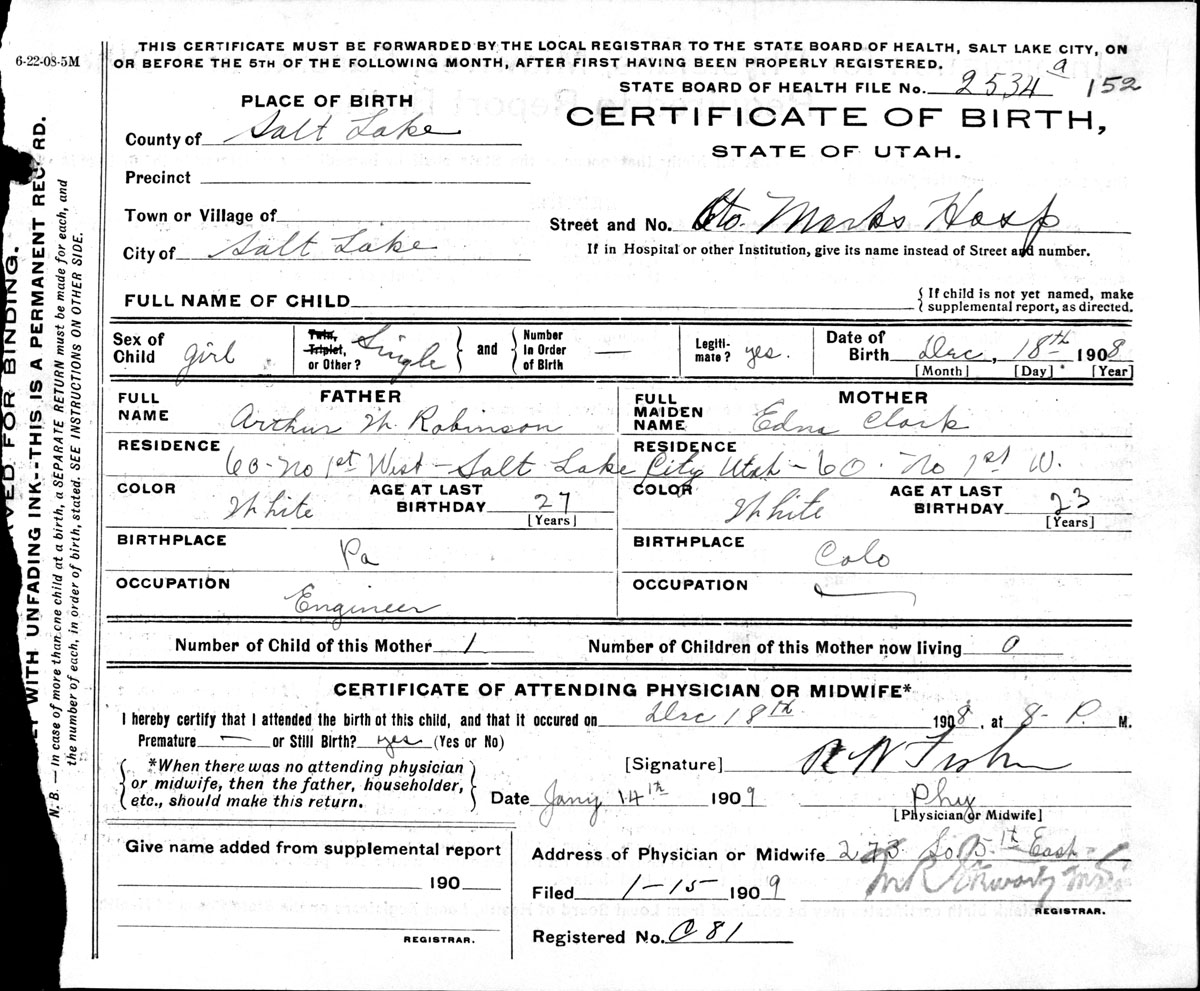 THIS CERTIFICATE MUST BE FORWARDED BY THE LOCAL REGISTRAR TO THE STATE BOARD OF HEALTH, SALT LAKE CITY, ON
OR BEFORE THE 5TH OF THE FOLLOWING MONTH, AFTER FIRST HAVING BEEN PROPERLY REGISTERED.
6-22-08-5M
STATE BOARD OF HEALTH FILE No. 2534 a 152
PLACE OF BIRTH
CERTIFICATE OF BIRTH,
STATE OF UTAH.
County of Salt Lake
Precinct
Town or Village of
Street and No. Marks Hosp
City of Salt Lake
If in Hospital or other Institution, give its name instead of Street and number.
FULL NAME OF CHILD
{ If child is not yet named, make
supplemental report, as directed.
Sex of Child girl
Twin, Triplet, or Other? Single
and
Number in Order of Birth —
Legiti-mate? yes.
Date of Birth Dec, 18th 1908
[Month] [Day] * [Year]
FATHER
MOTHER
FULL NAME Arthur W. Robinson
FULL MAIDEN NAME Edna Clark
RESIDENCE 60-No 1st West-Salt Lake City Utah-
RESIDENCE 60. No 1st W.
COLOR White AGE AT LAST BIRTHDAY 27 [Years]
COLOR White AGE AT LAST BIRTHDAY 23 [Years]
BIRTHPLACE Pa
BIRTHPLACE Colo
OCCUPATION Engineer
OCCUPATION
Number of Child of this Mother 1
Number of Children of this Mother now living 0
CERTIFICATE OF ATTENDING PHYSICIAN OR MIDWIFE*
I hereby certify that I attended the birth of this child, and that it occured on Dec 18th 1908, at 8- P. M.
Premature — or Still Birth? yes (Yes or No)
*When there was no attending physician
or midwife, then the father, householder,
etc., should make this return.
[Signature] R W Fisher
Date Jany 14th 1909
Phy
[Physician or Midwife]
Give name added from supplemental report
190
REGISTRAR.
Address of Physician or Midwife 273 So 5th East
Filed 1-15- 1909
REGISTRAR.
Registered No. C 81
VED FOR BINDING.
LY WITH UNFADING INK--THIS IS A PERMANENT RECORD.
N. B. — In case of more than one child at a birth, a SEPARATE RETURN must be made for each, and
the number of each, in order of birth, stated. SEE INSTRUCTIONS ON OTHER SIDE.